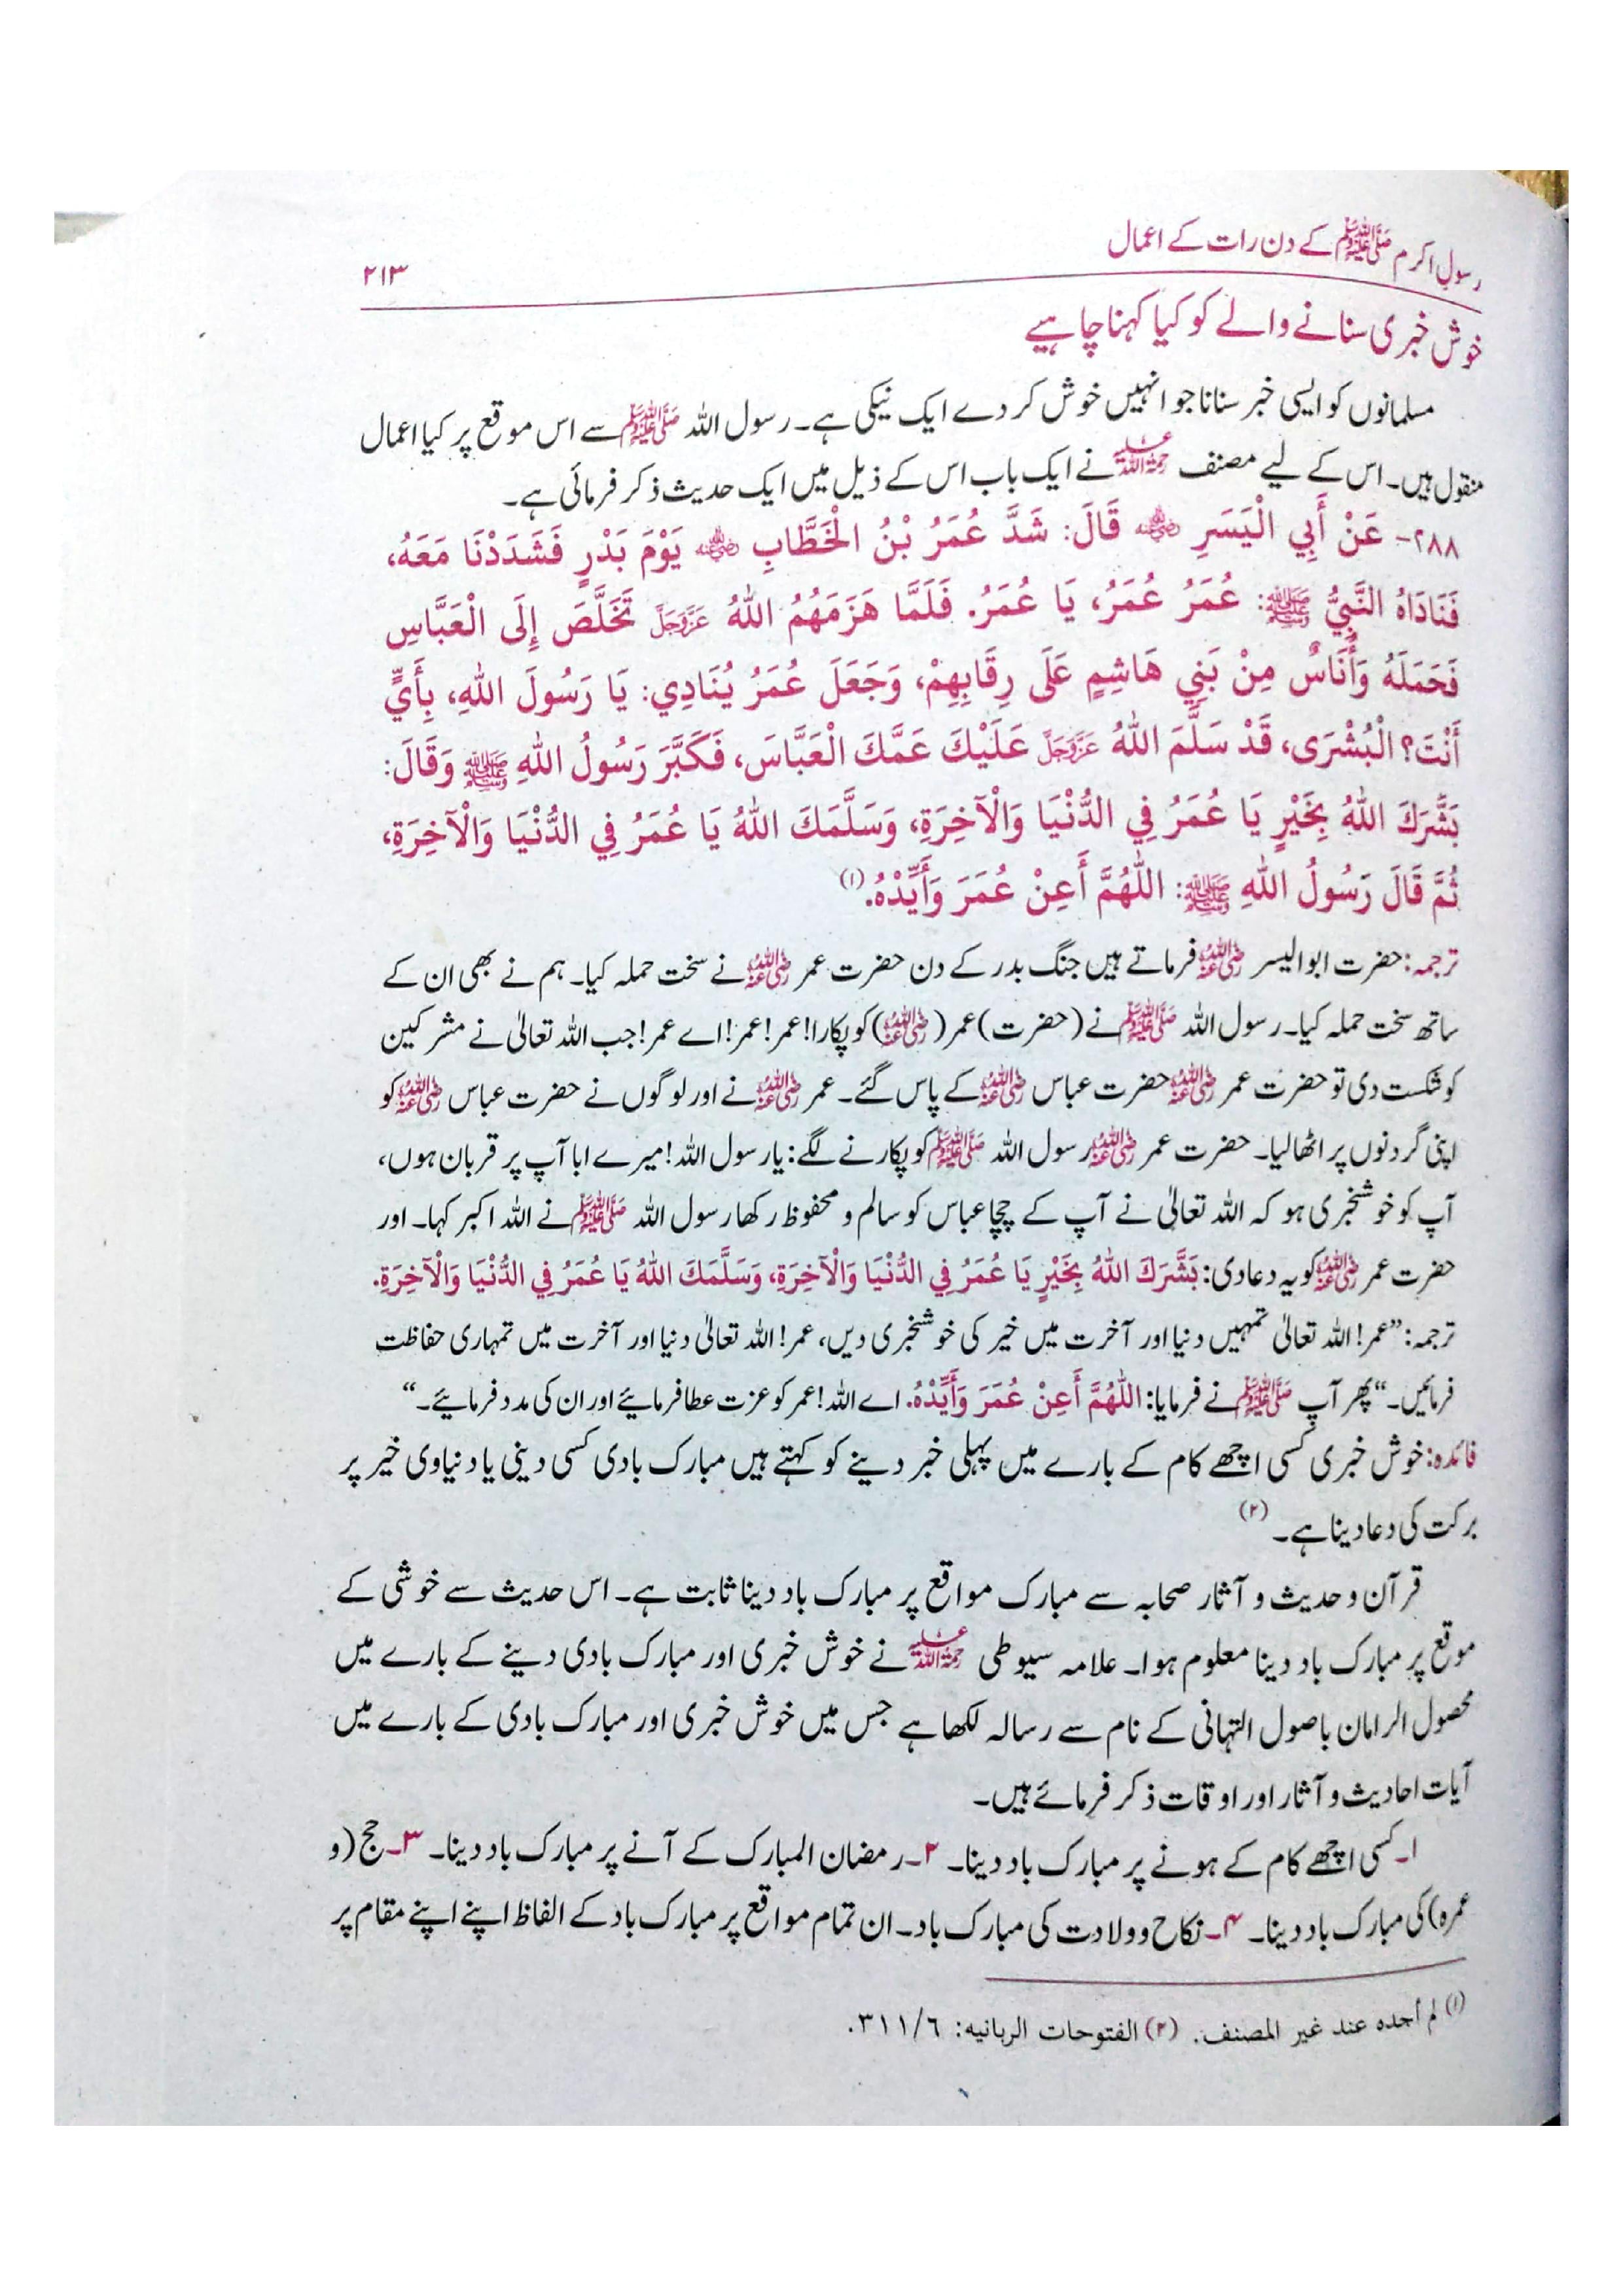 رسولِ اکرم ﷺ کے دن رات کے اعمال
۲۱۳
خوش خبری سنانے والے کو کیا کہنا چاہیے
مسلمانوں کو ایسی خبر سنانا جو انہیں خوش کر دے ایک نیکی ہے۔ رسول اللہ ﷺ سے اس موقع پر کیا اعمال
منقول ہیں۔ اس کے لیے مصنف رحمۃ اللہ علیہ نے ایک باب اس کے ذیل میں ایک حدیث ذکر فرمائی ہے۔
۲۸۸- عَنْ أَبِي الْيَسَرِ رضي الله عنه قَالَ: شَدَّ عُمَرُ بْنُ الْخَطَّابِ رضي الله عنه يَوْمَ بَدْرٍ فَشَدَدْنَا مَعَهُ،
فَنَادَاهُ النَّبِيُّ ﷺ: عُمَرُ عُمَرُ، يَا عُمَرُ. فَلَمَّا هَزَمَهُمُ اللهُ عَزَّوَجَلَّ تَخَلَّصَ إِلَى الْعَبَّاسِ
فَحَمَلَهُ وَأُنَاسٌ مِنْ بَنِي هَاشِمٍ عَلَى رِقَابِهِمْ، وَجَعَلَ عُمَرُ يُنَادِي: يَا رَسُولَ اللهِ، بِأَيٍّ
أَنْتَ؟ الْبُشْرَى، قَدْ سَلَّمَ اللهُ عَزَّوَجَلَّ عَلَيْكَ عَمَّكَ الْعَبَّاسَ، فَكَبَّرَ رَسُولُ اللهِ ﷺ وَقَالَ:
بَشَّرَكَ اللهُ بِخَيْرٍ يَا عُمَرُ فِي الدُّنْيَا وَالْآخِرَةِ، وَسَلَّمَكَ اللهُ يَا عُمَرُ فِي الدُّنْيَا وَالْآخِرَةِ،
ثُمَّ قَالَ رَسُولُ اللهِ ﷺ: اللّٰهُمَّ أَعِنْ عُمَرَ وَأَيِّدْهُ.(۱)
ترجمہ: حضرت ابوالیسر رضی اللہ عنہ فرماتے ہیں جنگ بدر کے دن حضرت عمر رضی اللہ عنہ نے سخت حملہ کیا۔ ہم نے بھی ان کے
ساتھ سخت حملہ کیا۔ رسول اللہ ﷺ نے (حضرت) عمر (رضی اللہ عنہ) کو پکارا! عمر! عمر! اے عمر! جب اللہ تعالیٰ نے مشرکین
کو شکست دی تو حضرت عمر رضی اللہ عنہ حضرت عباس رضی اللہ عنہ کے پاس گئے۔ عمر رضی اللہ عنہ نے اور لوگوں نے حضرت عباس رضی اللہ عنہ کو
اپنی گردنوں پر اٹھا لیا۔ حضرت عمر رضی اللہ عنہ رسول اللہ ﷺ کو پکارنے لگے: یا رسول اللہ! میرے ابا آپ پر قربان ہوں،
آپ کو خوشخبری ہو کہ اللہ تعالیٰ نے آپ کے چچا عباس کو سالم و محفوظ رکھا رسول اللہ ﷺ نے اللہ اکبر کہا۔ اور
حضرت عمر رضی اللہ عنہ کو یہ دعا دی: بَشَّرَكَ اللهُ بِخَيْرٍ يَا عُمَرُ فِي الدُّنْيَا وَالْآخِرَةِ، وَسَلَّمَكَ اللهُ يَا عُمَرُ فِي الدُّنْيَا وَالْآخِرَةِ.
ترجمہ: ”عمر! اللہ تعالیٰ تمہیں دنیا اور آخرت میں خیر کی خوشخبری دیں، عمر! اللہ تعالیٰ دنیا اور آخرت میں تمہاری حفاظت
فرمائیں۔“ پھر آپ ﷺ نے فرمایا: اللّٰهُمَّ أَعِنْ عُمَرَ وَأَيِّدْهُ. اے اللہ! عمر کو عزت عطا فرمائیے اور ان کی مدد فرمائیے۔“
فائدہ: خوش خبری کسی اچھے کام کے بارے میں پہلی خبر دینے کو کہتے ہیں مبارک بادی کسی دینی یا دنیاوی خیر پر
برکت کی دعا دینا ہے۔ (۲)
قرآن و حدیث و آثار صحابہ سے مبارک مواقع پر مبارک باد دینا ثابت ہے۔ اس حدیث سے خوشی کے
موقع پر مبارک باد دینا معلوم ہوا۔ علامہ سیوطی رحمۃ اللہ علیہ نے خوش خبری اور مبارک بادی دینے کے بارے میں
محصول الرامان باصول التہانی کے نام سے رسالہ لکھا ہے جس میں خوش خبری اور مبارک بادی کے بارے میں
آیات احادیث و آثار اور اوقات ذکر فرمائے ہیں۔
۱۔ کسی اچھے کام کے ہونے پر مبارک باد دینا۔ ۲۔ رمضان المبارک کے آنے پر مبارک باد دینا۔ ۳۔ حج (و
عمرہ) کی مبارک باد دینا۔ ۴۔ نکاح و ولادت کی مبارک باد۔ ان تمام مواقع پر مبارک باد کے الفاظ اپنے اپنے مقام پر
(۱) لم أجده عند غير المصنف. (۲) الفتوحات الربانيه: ٣١١/٦.